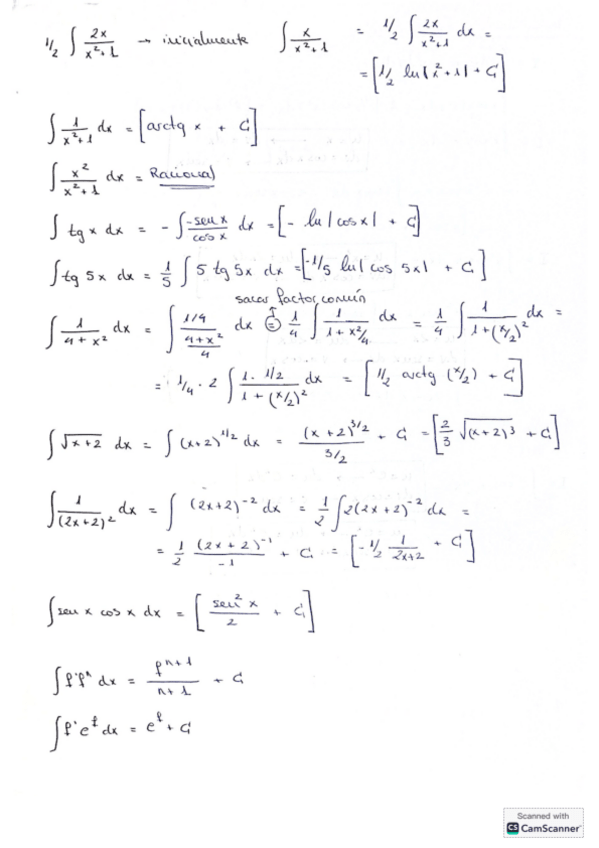 1/2 ∫ 2x/(x²+1) → inicialmente ∫ x/(x²+1) = 1/2 ∫ 2x/(x²+1) dx =
= [1/2 ln|x²+1| + C]
∫ 1/(x²+1) dx = [arctg x + C]
∫ x²/(x²+1) dx = Racional
∫ tg x dx = - ∫ -sen x/cos x dx = [- ln|cos x| + C]
∫ tg 5x dx = 1/5 ∫ 5 tg 5x dx = [-1/5 ln|cos 5x| + C]
sacar factor común
∫ 1/(4+x²) dx = ∫ (1/4)/((4+x²)/4) dx = 1/4 ∫ 1/(1+x²/4) dx = 1/4 ∫ 1/(1+(x/2)²) dx =
= 1/4 · 2 ∫ (1 · 1/2)/(1+(x/2)²) dx = [1/2 arctg (x/2) + C]
∫ √(x+2) dx = ∫ (x+2)^(1/2) dx = (x+2)^(3/2)/(3/2) + C = [2/3 √((x+2)³) + C]
∫ 1/(2x+2)² dx = ∫ (2x+2)^(-2) dx = 1/2 ∫ 2(2x+2)^(-2) dx =
= 1/2 (2x+2)^(-1)/(-1) + C = [-1/2 1/(2x+2) + C]
∫ sen x cos x dx = [sen² x/2 + C]
∫ f' fⁿ dx = f^(n+1)/(n+1) + C
∫ f' e^f dx = e^f + C
Scanned with
CS CamScanner